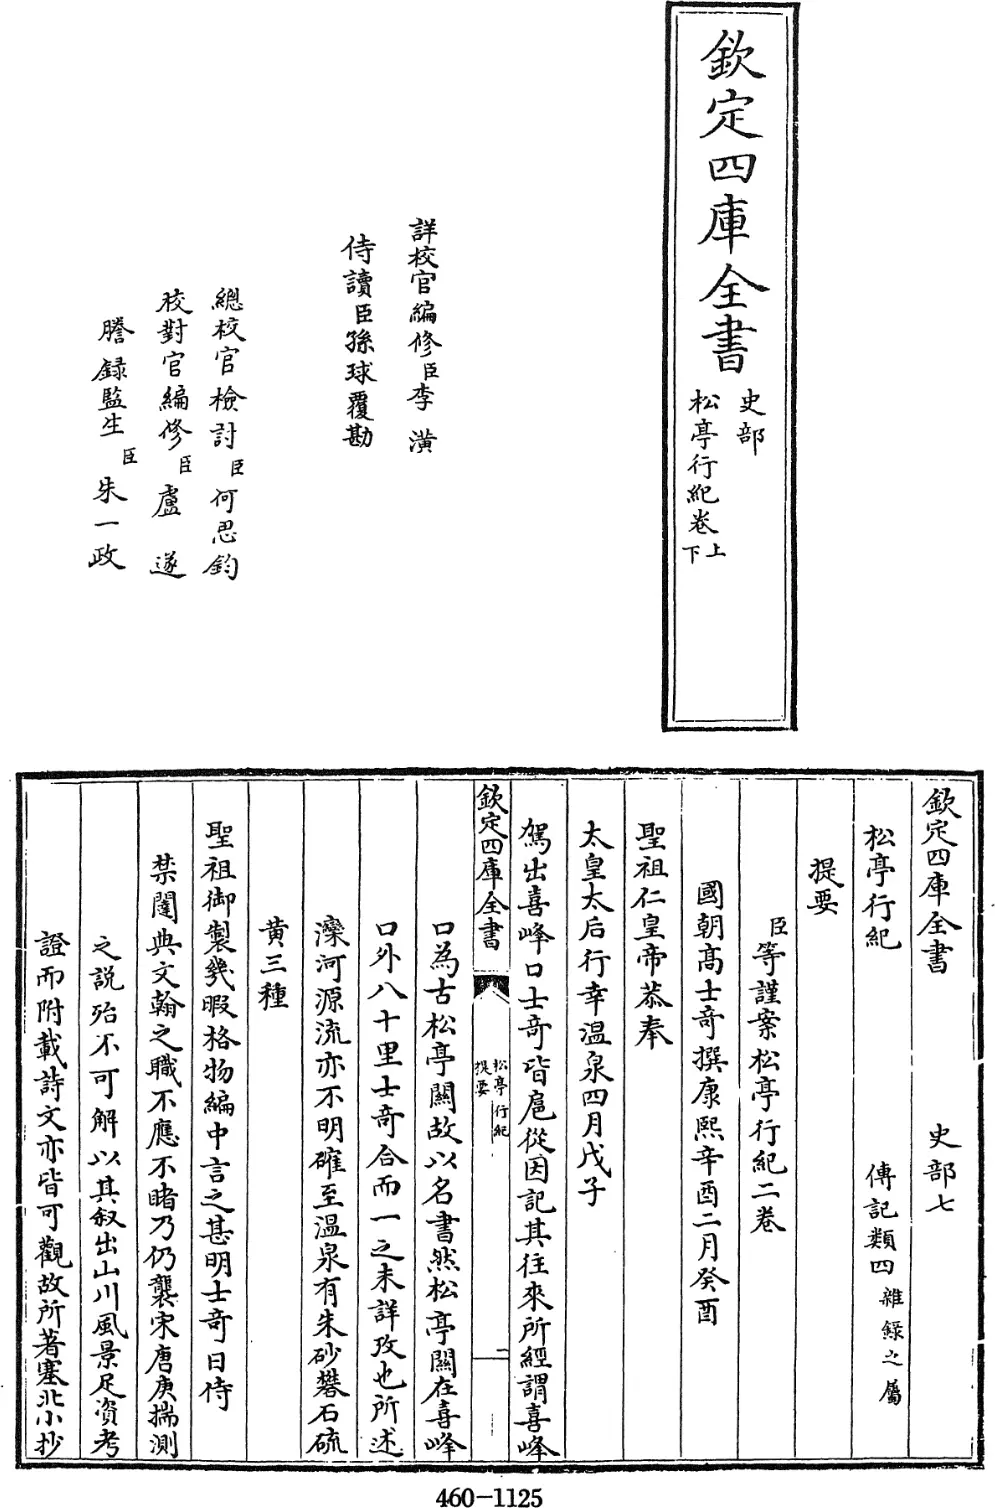 欽定四庫全書
史部
松亭行紀卷上下
詳校官編修臣李潢
侍讀臣孫球覆勘
總校官檢討臣何思鈞
校對官編修臣盧遂
謄錄監生臣朱一政
欽定四庫全書 史部七
松亭行紀 傳記類四雜録之屬
提要
臣等謹案松亭行紀二卷
國朝高士奇撰康熙辛酉二月癸酉
聖祖仁皇帝恭奉
太皇太后行幸温泉四月戊子
駕出喜峰口士奇皆扈從因記其往來所經謂喜峰
欽定四庫全書
松亭行紀
提要
二
口為古松亭關故以名書然松亭關在喜峰
口外八十里士奇合而一之未詳攷也所述
灤河源流亦不明確至温泉有朱砂礬石硫
黄三種
聖祖御製幾暇格物編中言之甚明士奇日侍
禁闥典文翰之職不應不睹乃仍襲宋唐庚揣測
之說殆不可解以其叙出山川風景足資考
證而附載詩文亦皆可觀故所著塞北小抄
460-1125